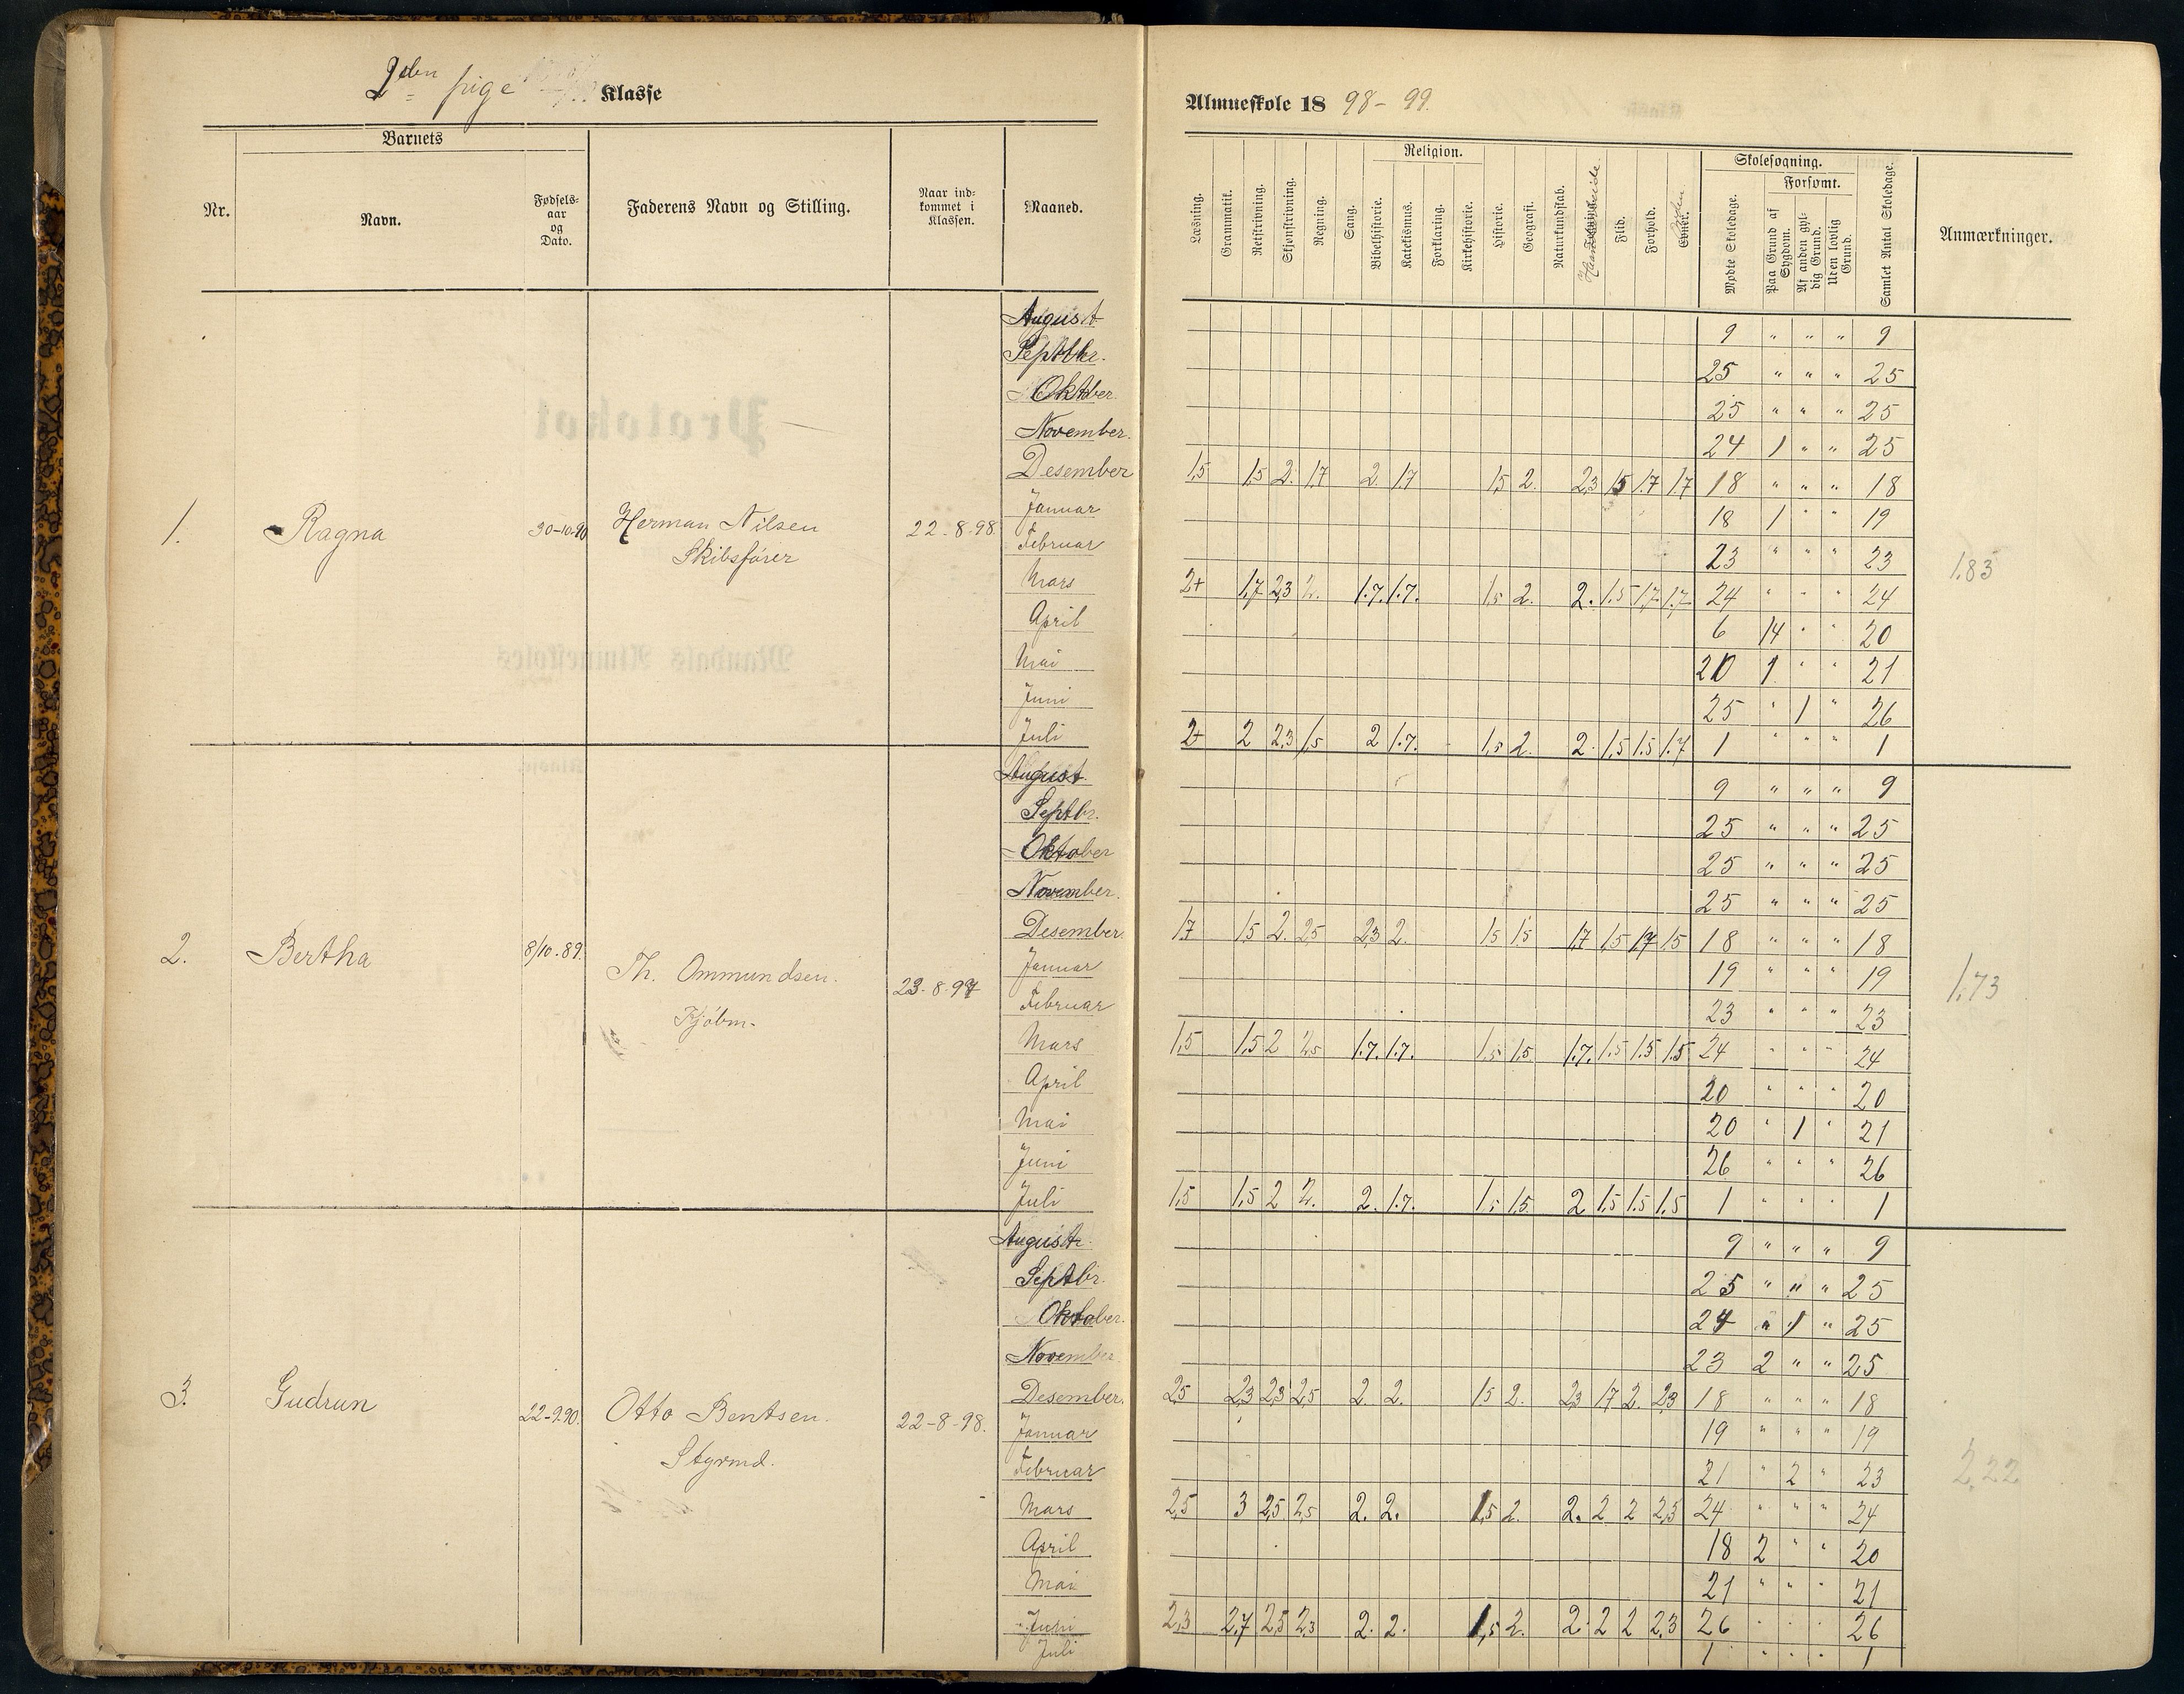 2den pige Klasse
Almueskole 18 98-99.
Barnets
Nr.
Navn.
Fødsels-
aar
og
Dato.
Faderens Navn og Stilling.
Naar ind-
kommet i
Klassen.
Maaned.
Læsning.
Grammatik.
Retskrivning.
Skjønskrivning.
Regning.
Sang.
Religion.
Bibelhistorie.
Katekismus.
Forklaring.
Kirkehistorie.
Historie.
Geografi.
Naturkundskab.
Flid.
Forhold.
Evner.
Skolesøgning.
Mødte Skoledage.
Forsømt.
Paa Grund af
Sygdom.
Af anden gyl-
dig Grund.
Uden lovlig
Grund.
Samlet Antal Skoledage.
Anmærkninger.
1. Ragna 30-10.90 Herman Nilsen
Skibsfører
22-8-98.
August 9 " " " 9
Septbr. 25 " " " 25
Oktober 25 " " " 25
November. 24 1 " " 25
Desember 1,5 1,5 2. 1,7 2. 1,7 1,5 2. 2,3 1,5 1.7 1.7 18 " " " 18
Januar 18 1 " " 19
Februar 23 " " " 23
Mars 2+ 1,7 2,3 2. 1.7. 1.7. 1,5 2. 2. 1.5 1,7 1,7 24 " " " 24
April 6 14 " " 20
Mai 20 1 " " 21
Juni 25 " 1 " 26
Juli 2+ 2 2,3 1,5 2 1.7. 1,5 2. 2. 1,5 1.5 1.7 1 " " " 1
1.83
2. Bertha 8/10.89. Th. Ommundsen.
Kjøbm.
23-8-97
August 9 " " " 9
Septbr. 25 " " " 25
Oktober 25 " " " 25
November. 25 " " " 25
Desember. 1,7 1,5 2. 2,5 2,3 2. 1,5 1,5 1,7 1,5 1,7 1,5 18 " " " 18
Januar 19 " " " 19
Februar 23 " " " 23
Mars 1,5 1,5 2 2,5 1.7. 1.7. 1,5 1,5. 1.7. 1.5 1.5 1.5 24 " " " 24
April 20 " " " 20
Mai 20 " 1 " 21
Juni 26 " " " 26
Juli 1,5 1,5 2 2. 2. 1.7. 1,5 1,5. 2 1,5 1.5 1,5 1 " " " 1
1.73
3. Gudrun 22-9.90. Otto Bentsen.
Styrmd.
22-8-98.
August 9 " " " 9
Septbr. 25 " " " 25
Oktober. 24 " 1 " 25
November 23 2 " " 25
Desember. 2,5 2,3 2,3 2,5 2. 2. 1,5 2. 2,3 1,7 2. 2,3 18 " " " 18
Januar 19 " " " 19
Februar 21 " 2 " 23
Mars 2,5 3 2,5 2,5 2. 2. 1,5 2. 2. 2 2 2,3 24 " " " 24
April 18 2 " " 20
Mai 21 " " " 21
Juni 2,3 2,7 2,5 2,3 2. 2. 1,5 2. 2. 2 2 2.3 26 " " " 26
Juli 1 " " " 1
2,22